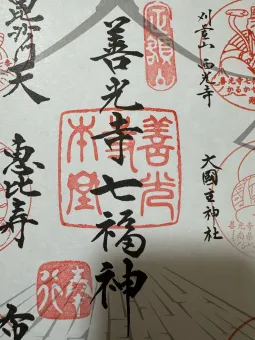 刈萱山 西光寺
大國主神社
定額山
善光寺七福神
善光寺本堂
奉拝
毘沙門天
恵比寿
布